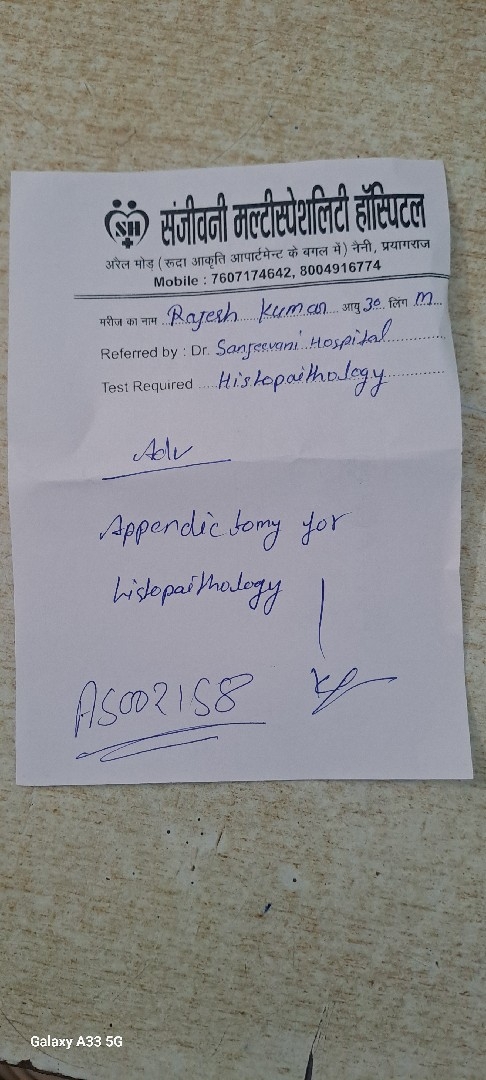 SH संजीवनी मल्टीस्पेशलिटी हॉस्पिटल
अरैल मोड़ (रूद्रा आकृति आपार्टमेन्ट के बगल में) नैनी, प्रयागराज
Mobile : 7607174642, 8004916774
मरीज का नाम Rajesh Kumar आयु 30 लिंग M
Referred by : Dr. Sanjeevani Hospital
Test Required Histopaithology
Adv
Appendictomy for
histopaithology
AS002158
Galaxy A33 5G